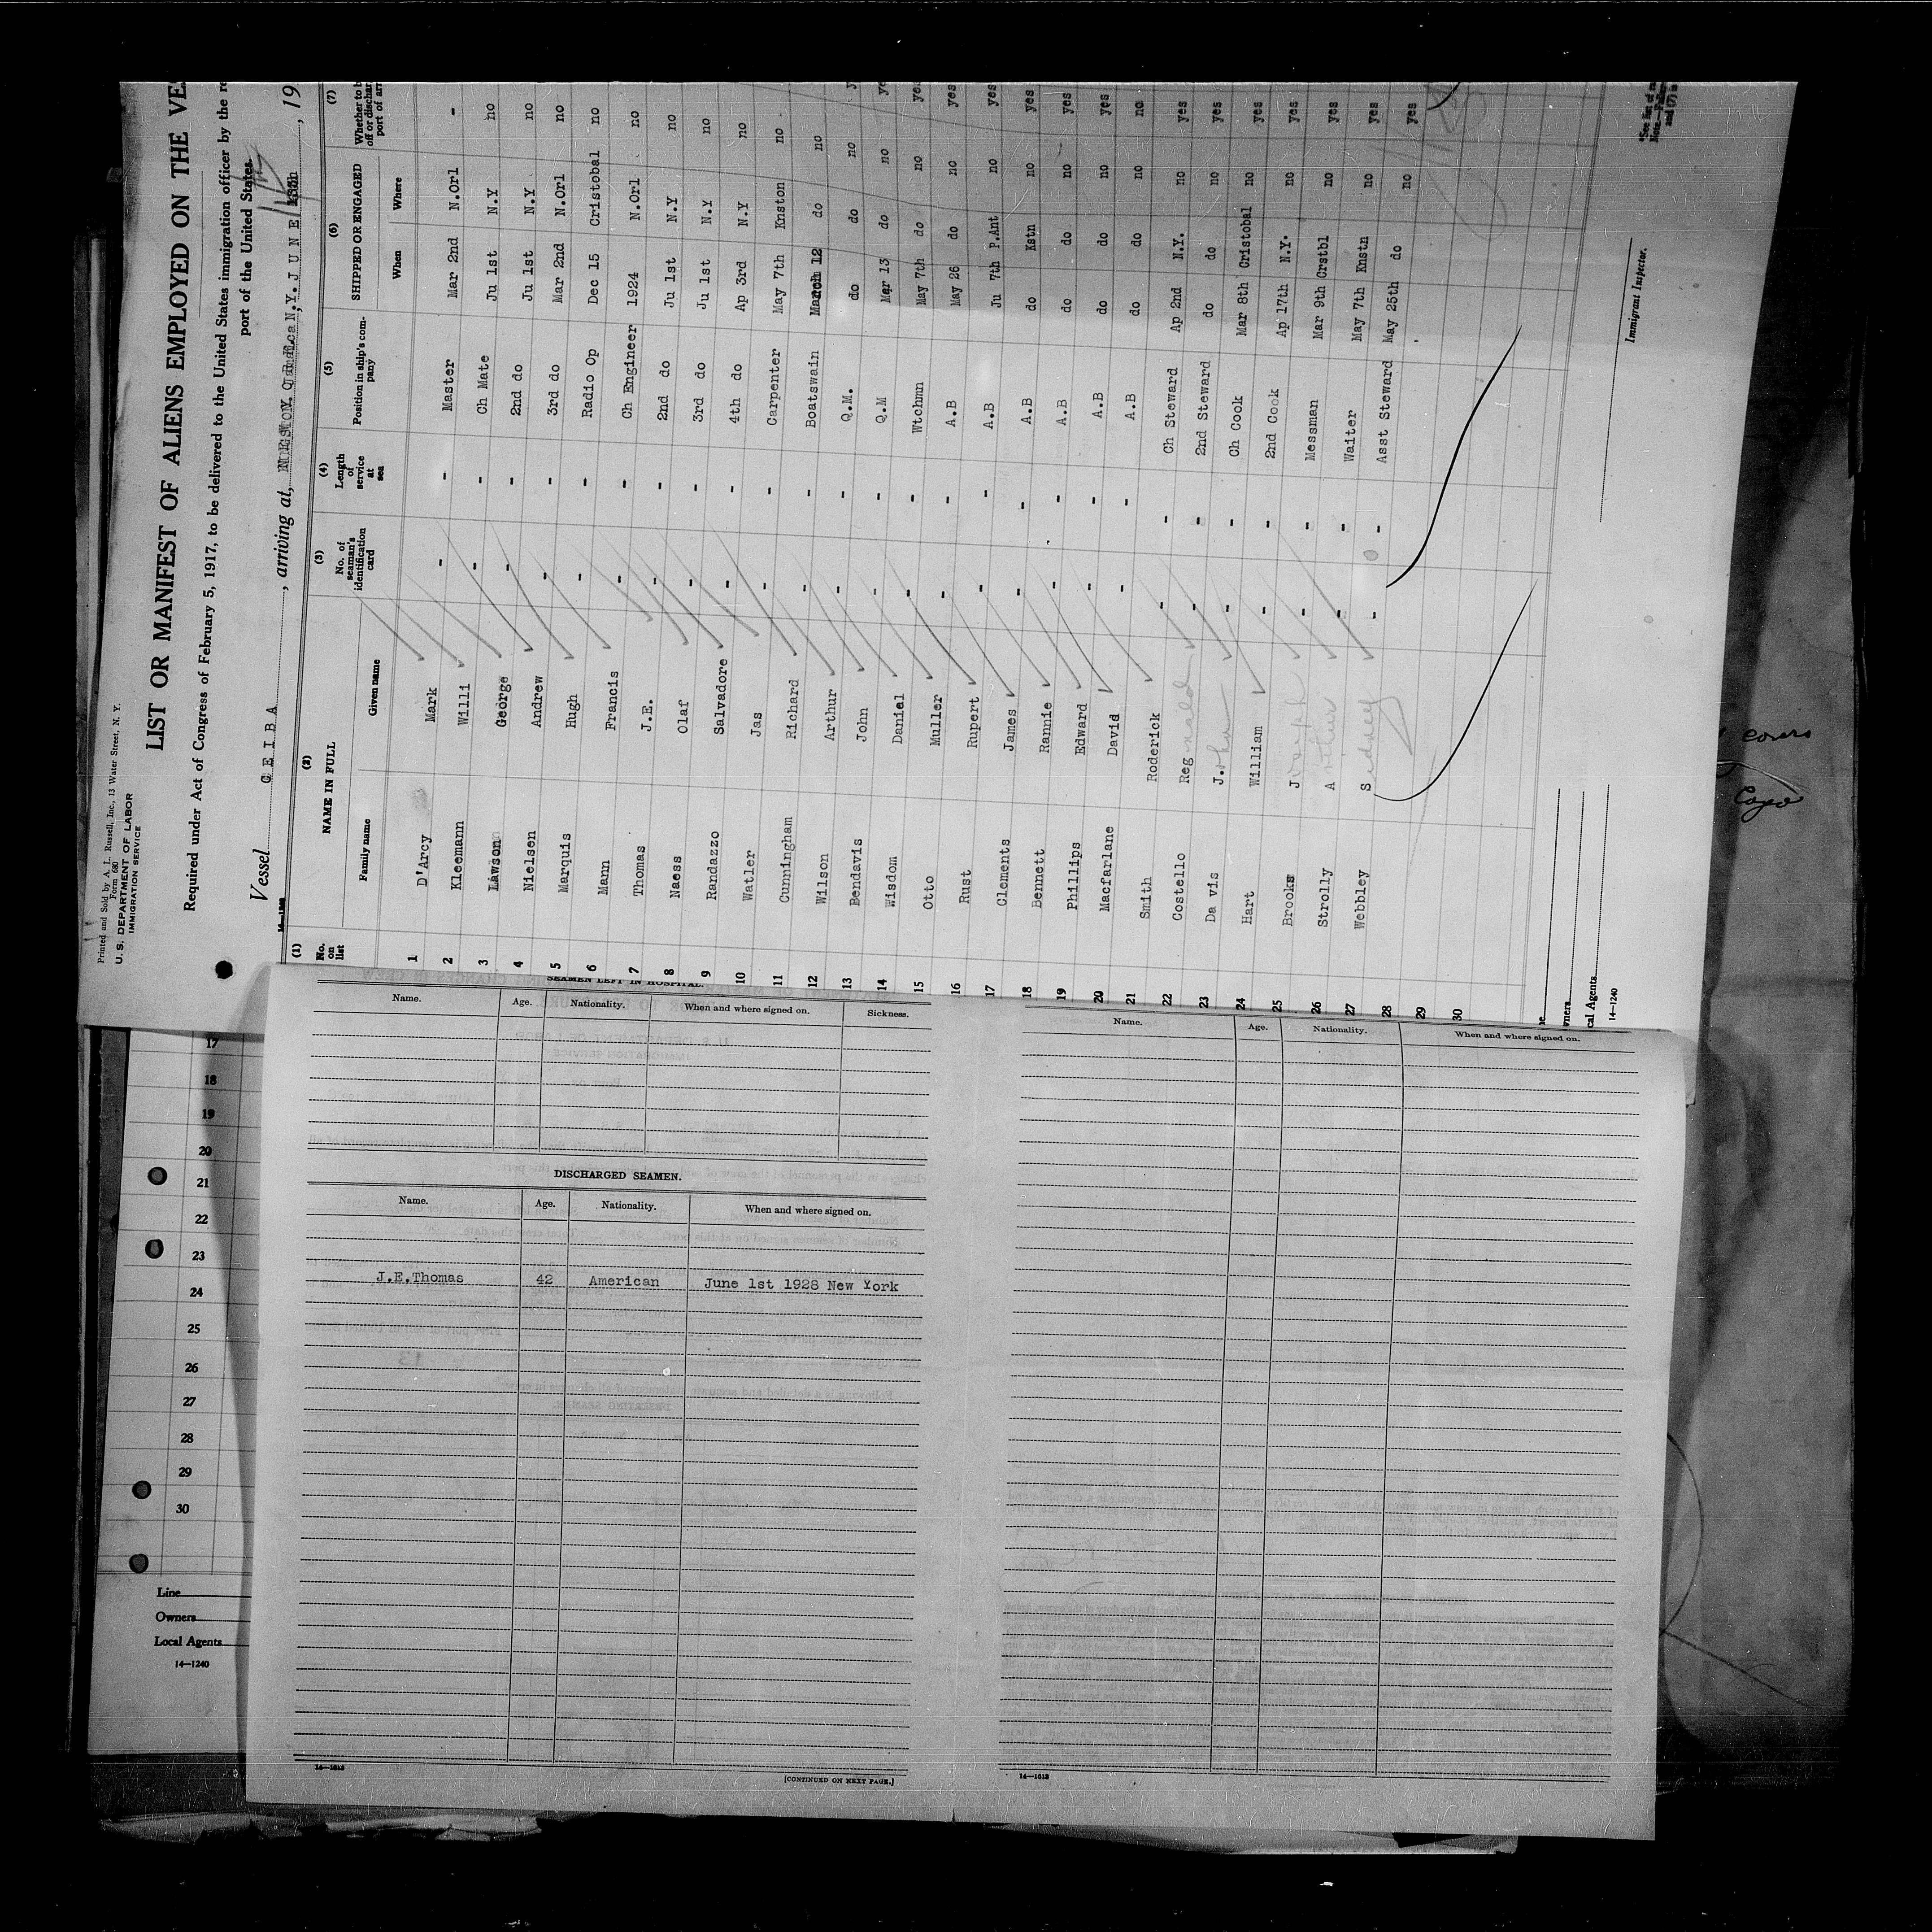 Printed and Sold by A. L. Russell, Inc., 13 Water Street, N. Y.
Form 680
U. S. DEPARTMENT OF LABOR
IMMIGRATION SERVICE
LIST OR MANIFEST OF ALIENS EMPLOYED ON THE VE
Required under Act of Congress of February 5, 1917, to be delivered to the United States immigration officer by the re
port of the United States
Vessel CEIBA, arriving at, N.Y. JUNE, 19
(1) (2) (3) (4) (5) (6) (7)
No. on list NAME IN FULL No. of seaman's identification card Length of service at sea Position in ship's company SHIPPED OR ENGAGED Whether to b off or dischar port of arr
Family name Given name When Where
1 D'Arcy Mark - - Master Mar 2nd N.Orl -
2 Kleemann Willi - - Ch Mate Ju 1st N.Y no
3 Lawson George - - 2nd do Ju 1st N.Y no
4 Nielsen Andrew - - 3rd do Mar 2nd N.Orl no
5 Marquis Hugh - - Radio Op Dec 15 Cristobal no
6 Mann Francis - - Ch Engineer 1924 N.Orl no
7 Thomas J.E. - - 2nd do Ju 1st N.Y no
8 Naess Olaf - - 3rd do Ju 1st N.Y no
9 Randazzo Salvadore - - 4th do Ap 3rd N.Y no
10 Watler Jas - - Carpenter May 7th Knston no
11 Cunningham Richard - - Boatswain March 12 do no
12 Wilson Arthur - - Q.M. do do no
13 Bendavis John - - Q.M Mar 13 do no ye
14 Wisdom Daniel - - Wtchmn May 7th do no yes
15 Otto Muller - - A.B May 26 do no yes
16 Rust Rupert - - A.B Ju 7th P.Ant no yes
17 Clements James - - A.B do Kstn no yes
18 Bennett Rannie - - A.B do do no yes
19 Phillips Edward - - A.B do do no yes
20 Macfarlane David - - A.B do do no no
21 Smith Roderick - - Ch Steward Ap 2nd N.Y. no yes
22 Costello Reginald - - 2nd Steward do do no yes
23 Da vis J.ohn - - Ch Cook Mar 8th Cristobal no yes
24 Hart William - - 2nd Cook Ap 17th N.Y. no yes
25 Brooks Joseph - - Messman Mar 9th Crstbl no yes
26 Strolly Arthur - - Waiter May 7th Knstn no yes
27 Webbley Sidney - - Asst Steward May 25th do no yes
28
29
30
Immigrant Inspector.
*See list of
and (7) is
wners
cal Agents
14—1240
covers
SEAMEN LEFT IN HOSPITAL.
Name. Age. Nationality. When and where signed on. Sickness.
DISCHARGED SEAMEN.
Name. Age. Nationality. When and where signed on.
J.E.Thomas 42 American June 1st 1928 New York
14—1613
[CONTINUED ON NEXT PAGE.]
Name. Age. Nationality. When and where signed on.
14—1613
17
18
19
20
21
22
23
24
25
26
27
28
29
30
Line
Owners
Local Agents
14—1240